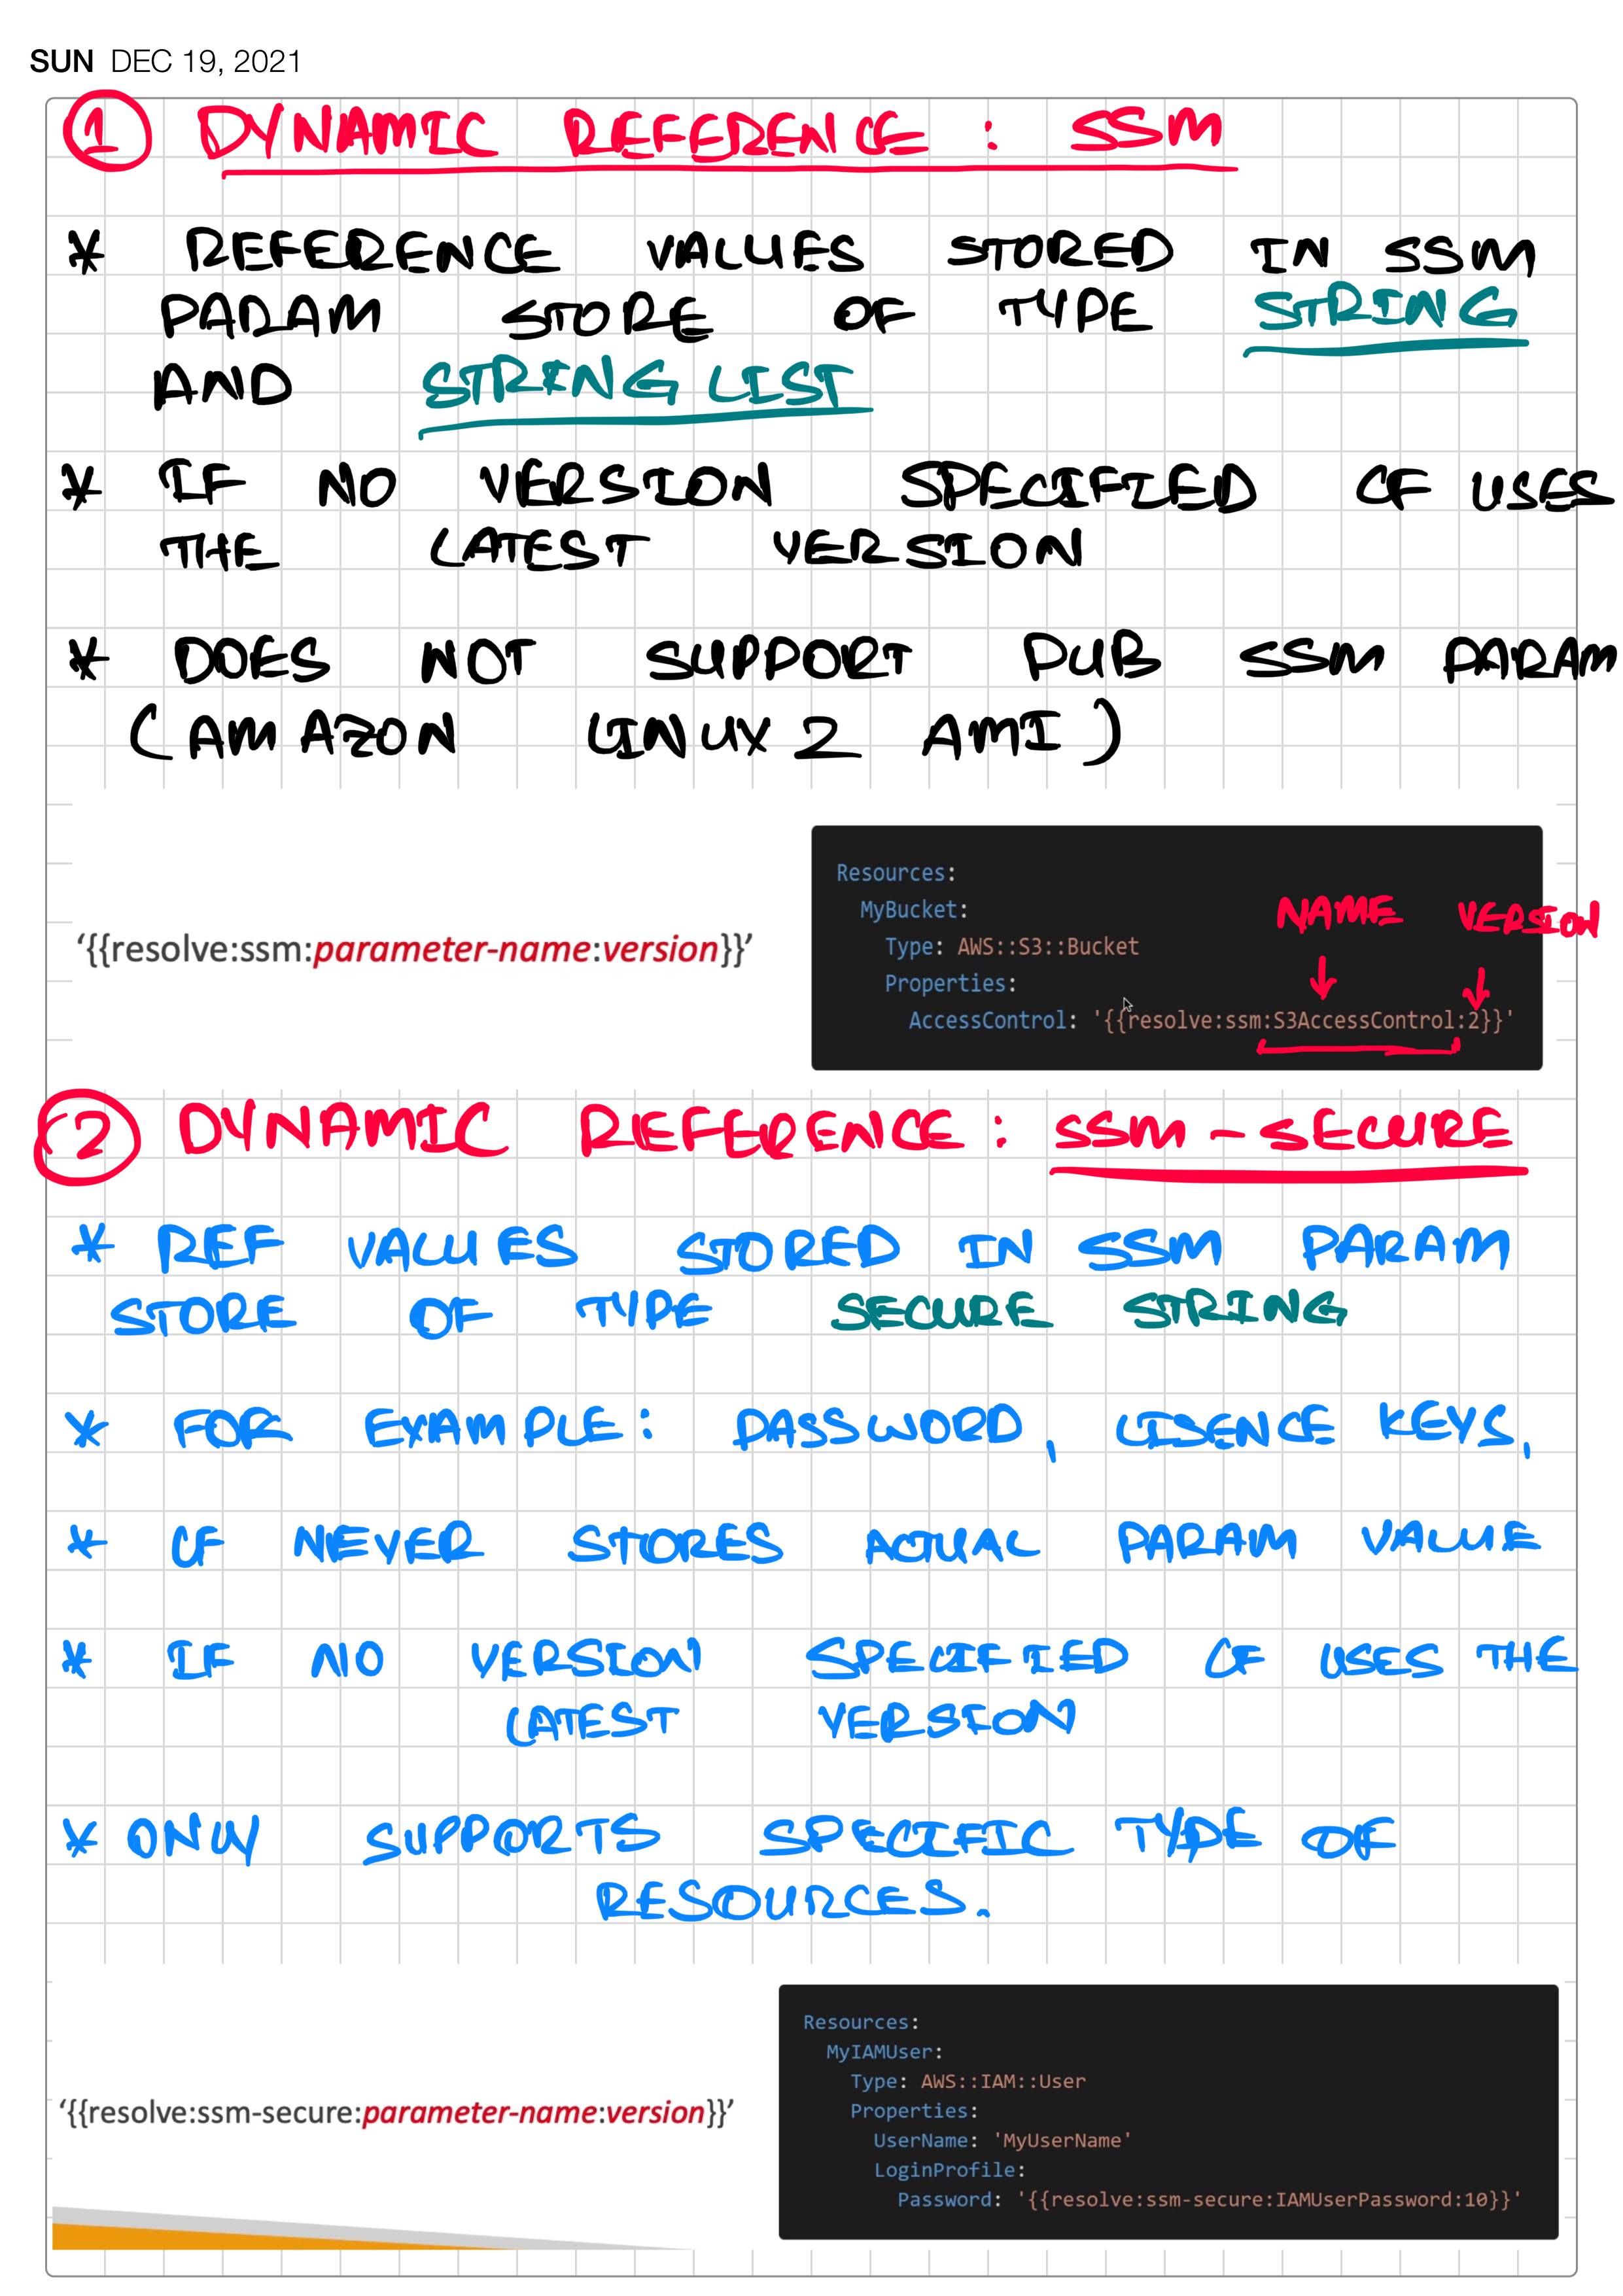 SUN DEC 19, 2021
1 DYNAMIC REFERENCE : SSM
* REFERENCE VALUES STORED IN SSM
PARAM STORE OF TYPE STRING
AND STRING LIST
* IF NO VERSION SPECIFIED CF USES
THE LATEST VERSION
* DOES NOT SUPPORT PUB SSM PARAM
(AMAZON LINUX 2 AMI)
‘{{resolve:ssm:parameter-name:version}}’
Resources:
MyBucket:
NAME VERSION
Type: AWS::S3::Bucket
Properties:
AccessControl: '{{resolve:ssm:S3AccessControl:2}}'
2 DYNAMIC REFERENCE : SSM-SECURE
* REF VALUES STORED IN SSM PARAM
STORE OF TYPE SECURE STRING
* FOR EXAMPLE: PASSWORD, LISENCE KEYS,
* CF NEVER STORES ACTUAL PARAM VALUE
* IF NO VERSION SPECIFIED CF USES THE
LATEST VERSION
* ONLY SUPPORTS SPECIFIC TYPE OF
RESOURCES.
‘{{resolve:ssm-secure:parameter-name:version}}’
Resources:
MyIAMUser:
Type: AWS::IAM::User
Properties:
UserName: 'MyUserName'
LoginProfile:
Password: '{{resolve:ssm-secure:IAMUserPassword:10}}'